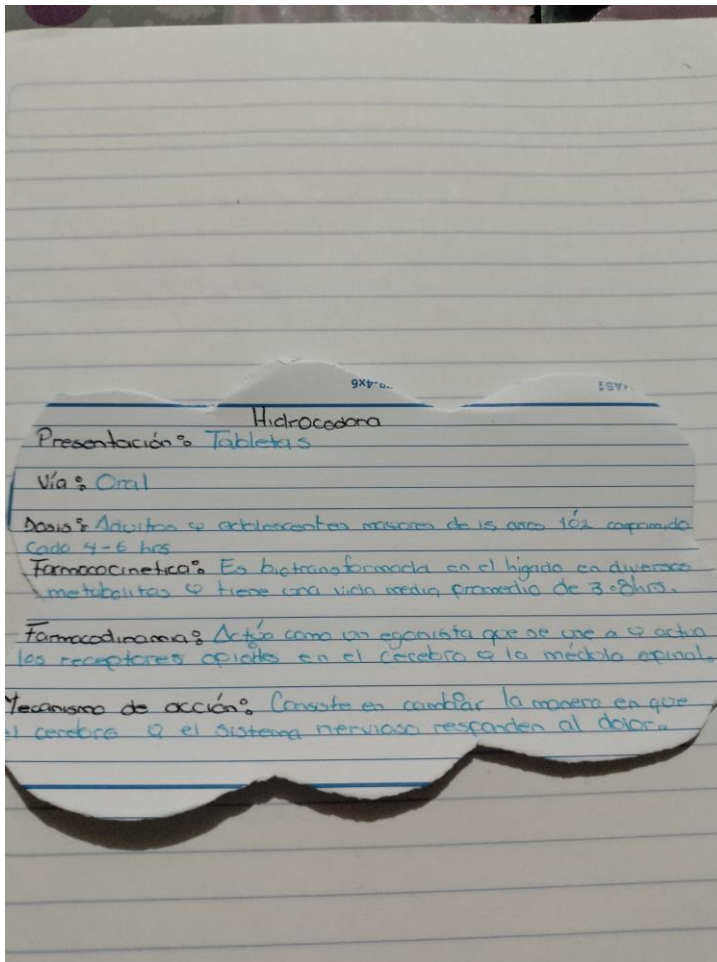 Hidrocodona
Presentación: Tabletas
Vía: Oral
Dosis: Adultos y adolescentes mayores de 15 años 1ó2 comprimido
Cada 4-6 hrs
Farmacocinetica: Es biotransformada en el hígado en diversos
metabolitos y tiene una vida media promedio de 3.8hrs.
Farmacodinamia: Actúa como un agonista que se une a y activa
los receptores opioides en el cerebro y la médula espinal.
Mecanismo de acción: Consiste en cambiar la manera en que
el cerebro y el sistema nervioso responden al dolor.